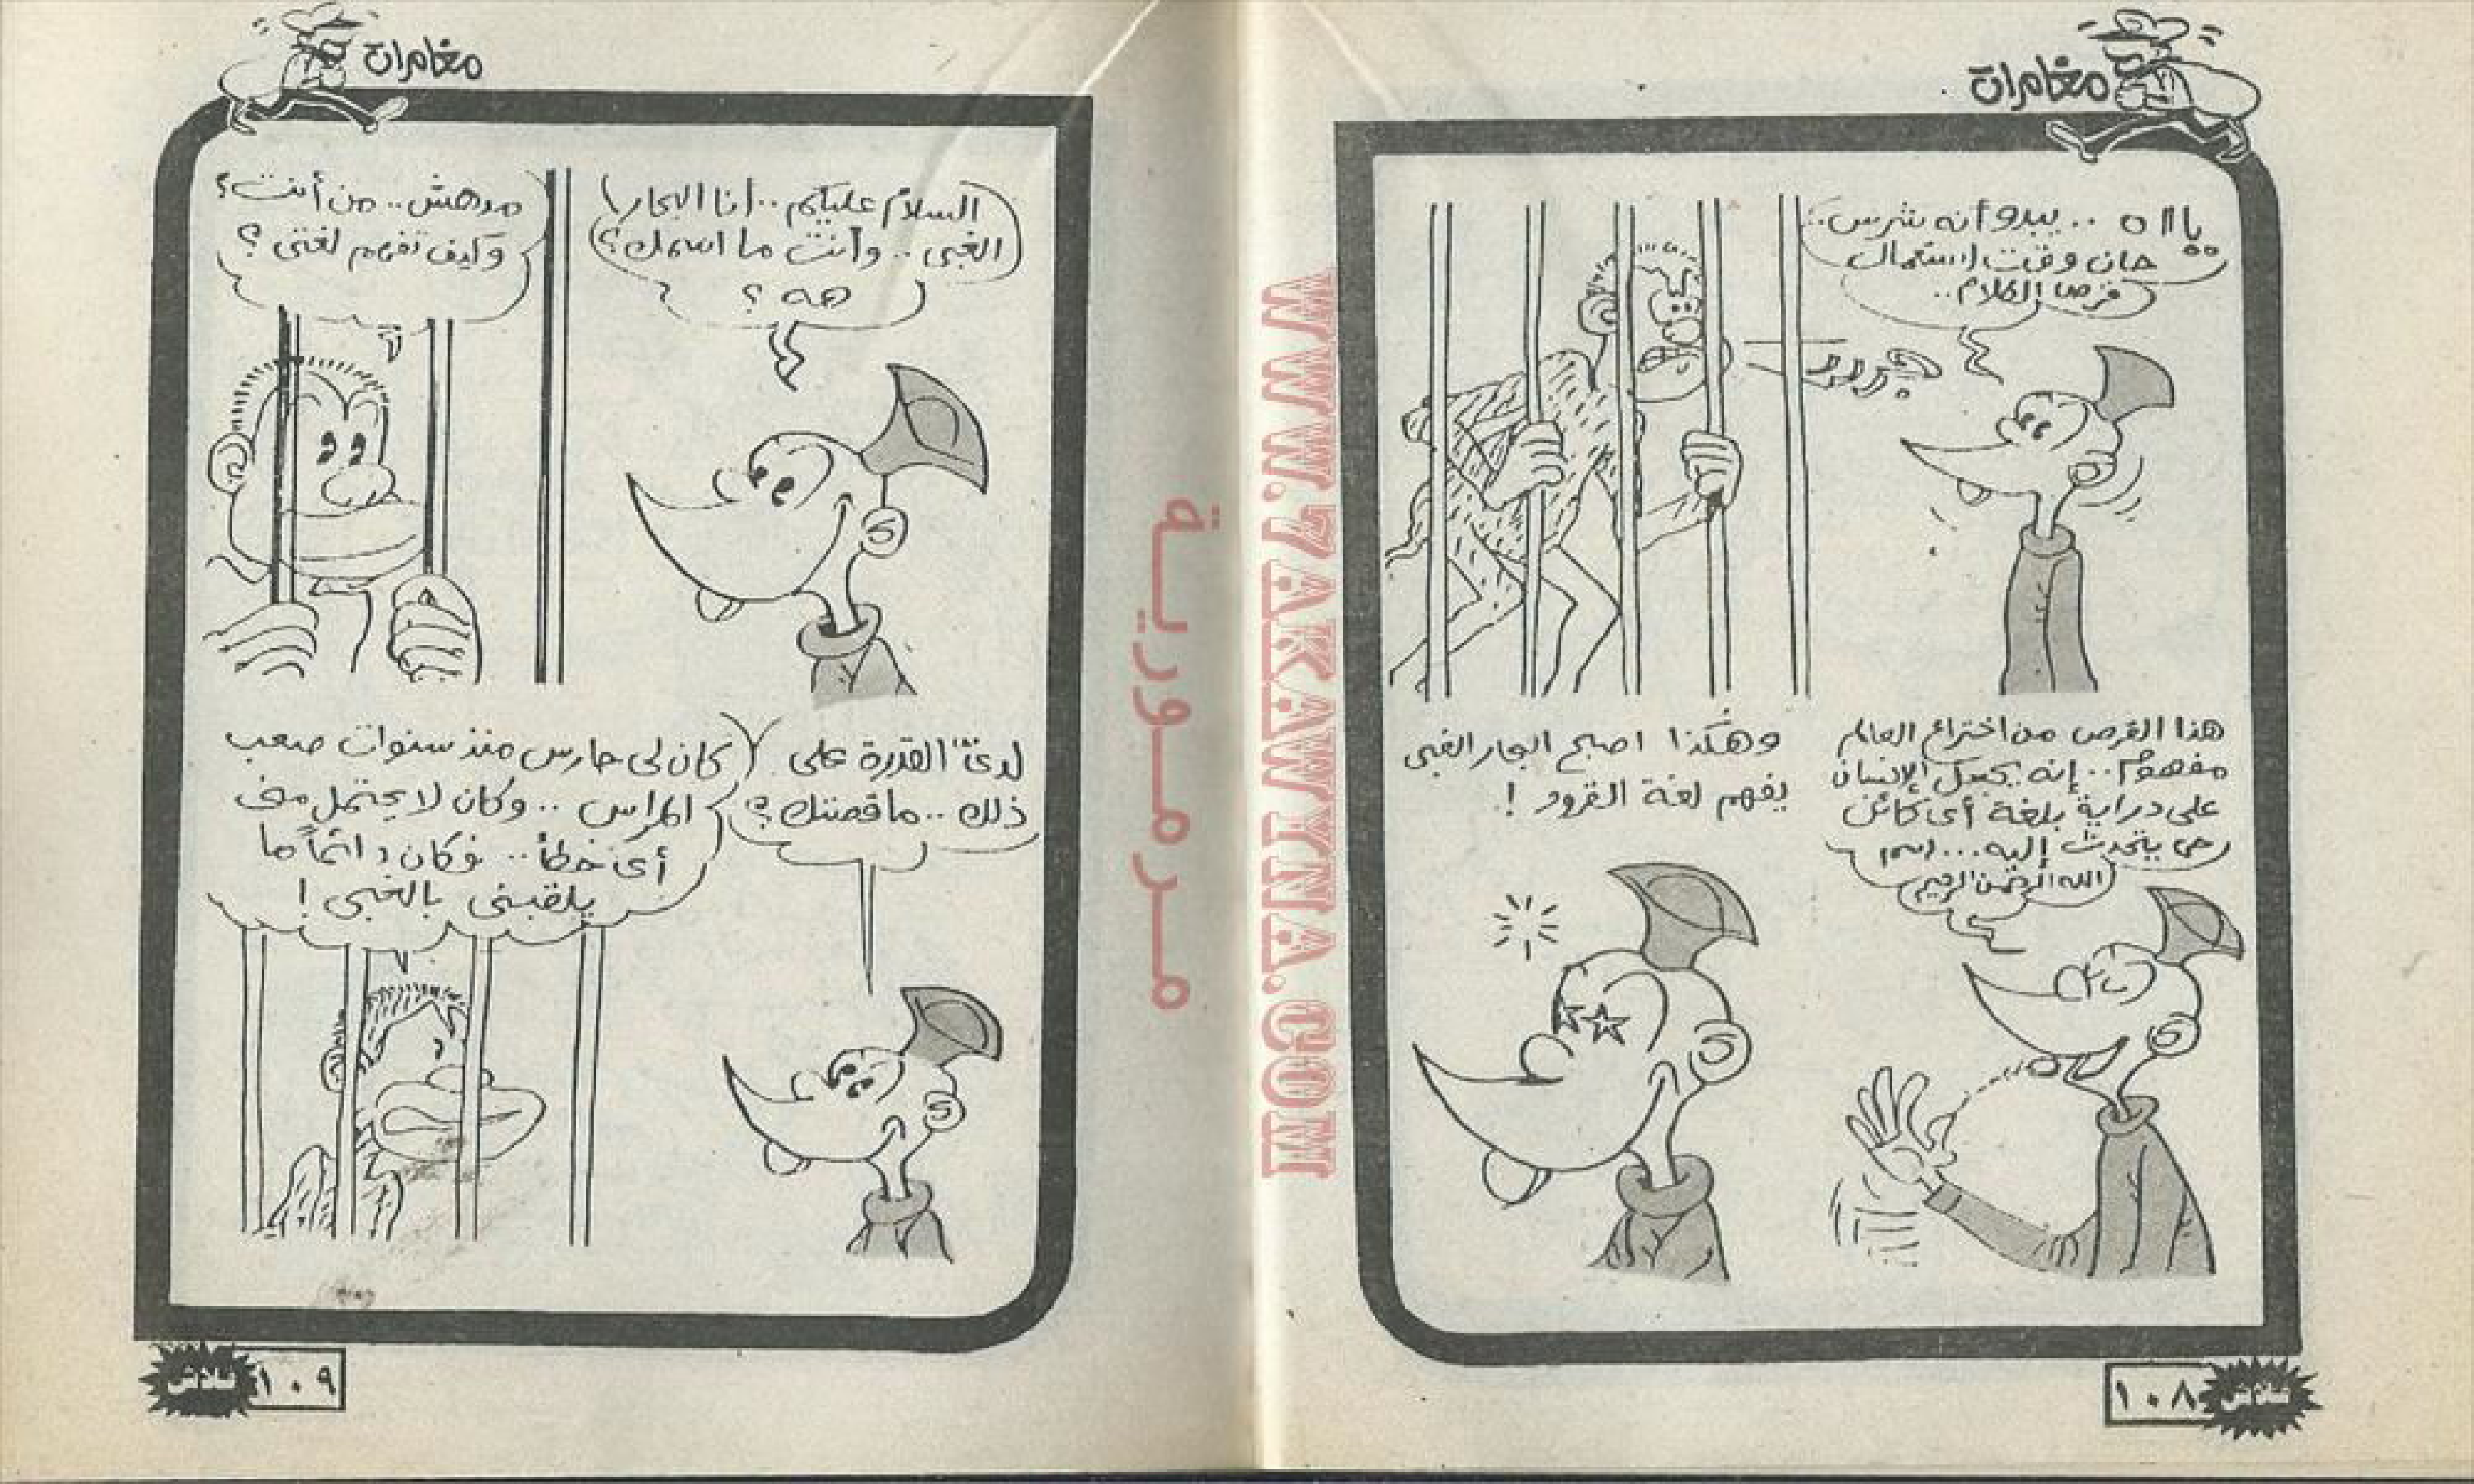 مغامرات
يااااه .. يبدو أنه شرس ..
حان وقت استعمال
قرص الكلام ..
جررر
هذا القرص من اختراع العالم
مفهوم .. إنه يجعل الإنسان
على دراية بلغة أى كائن
حى يتحدث إليه ... بسم
الله الرحمن الرحيم
وهكذا اصبح البحار الغبى
يفهم لغة القرود !
١٠٨
فلاش
WWW.7AKAWINA.COM
مرمورية
مغامرات
السلام عليكم .. أنا البحار
الغبى .. وأنت ما اسمك ؟
هه ؟
مدهش .. من أنت ؟
وكيف تفهم لغتى ؟
لدىّ القدرة على
ذلك .. ما قصتك ؟
كان لى حارس منذ سنوات صعب
المراس .. وكان لا يحتمل منى
أى خطأ .. فكان دائماً ما
يلقبنى بالغبى !
١٠٩
فلاش